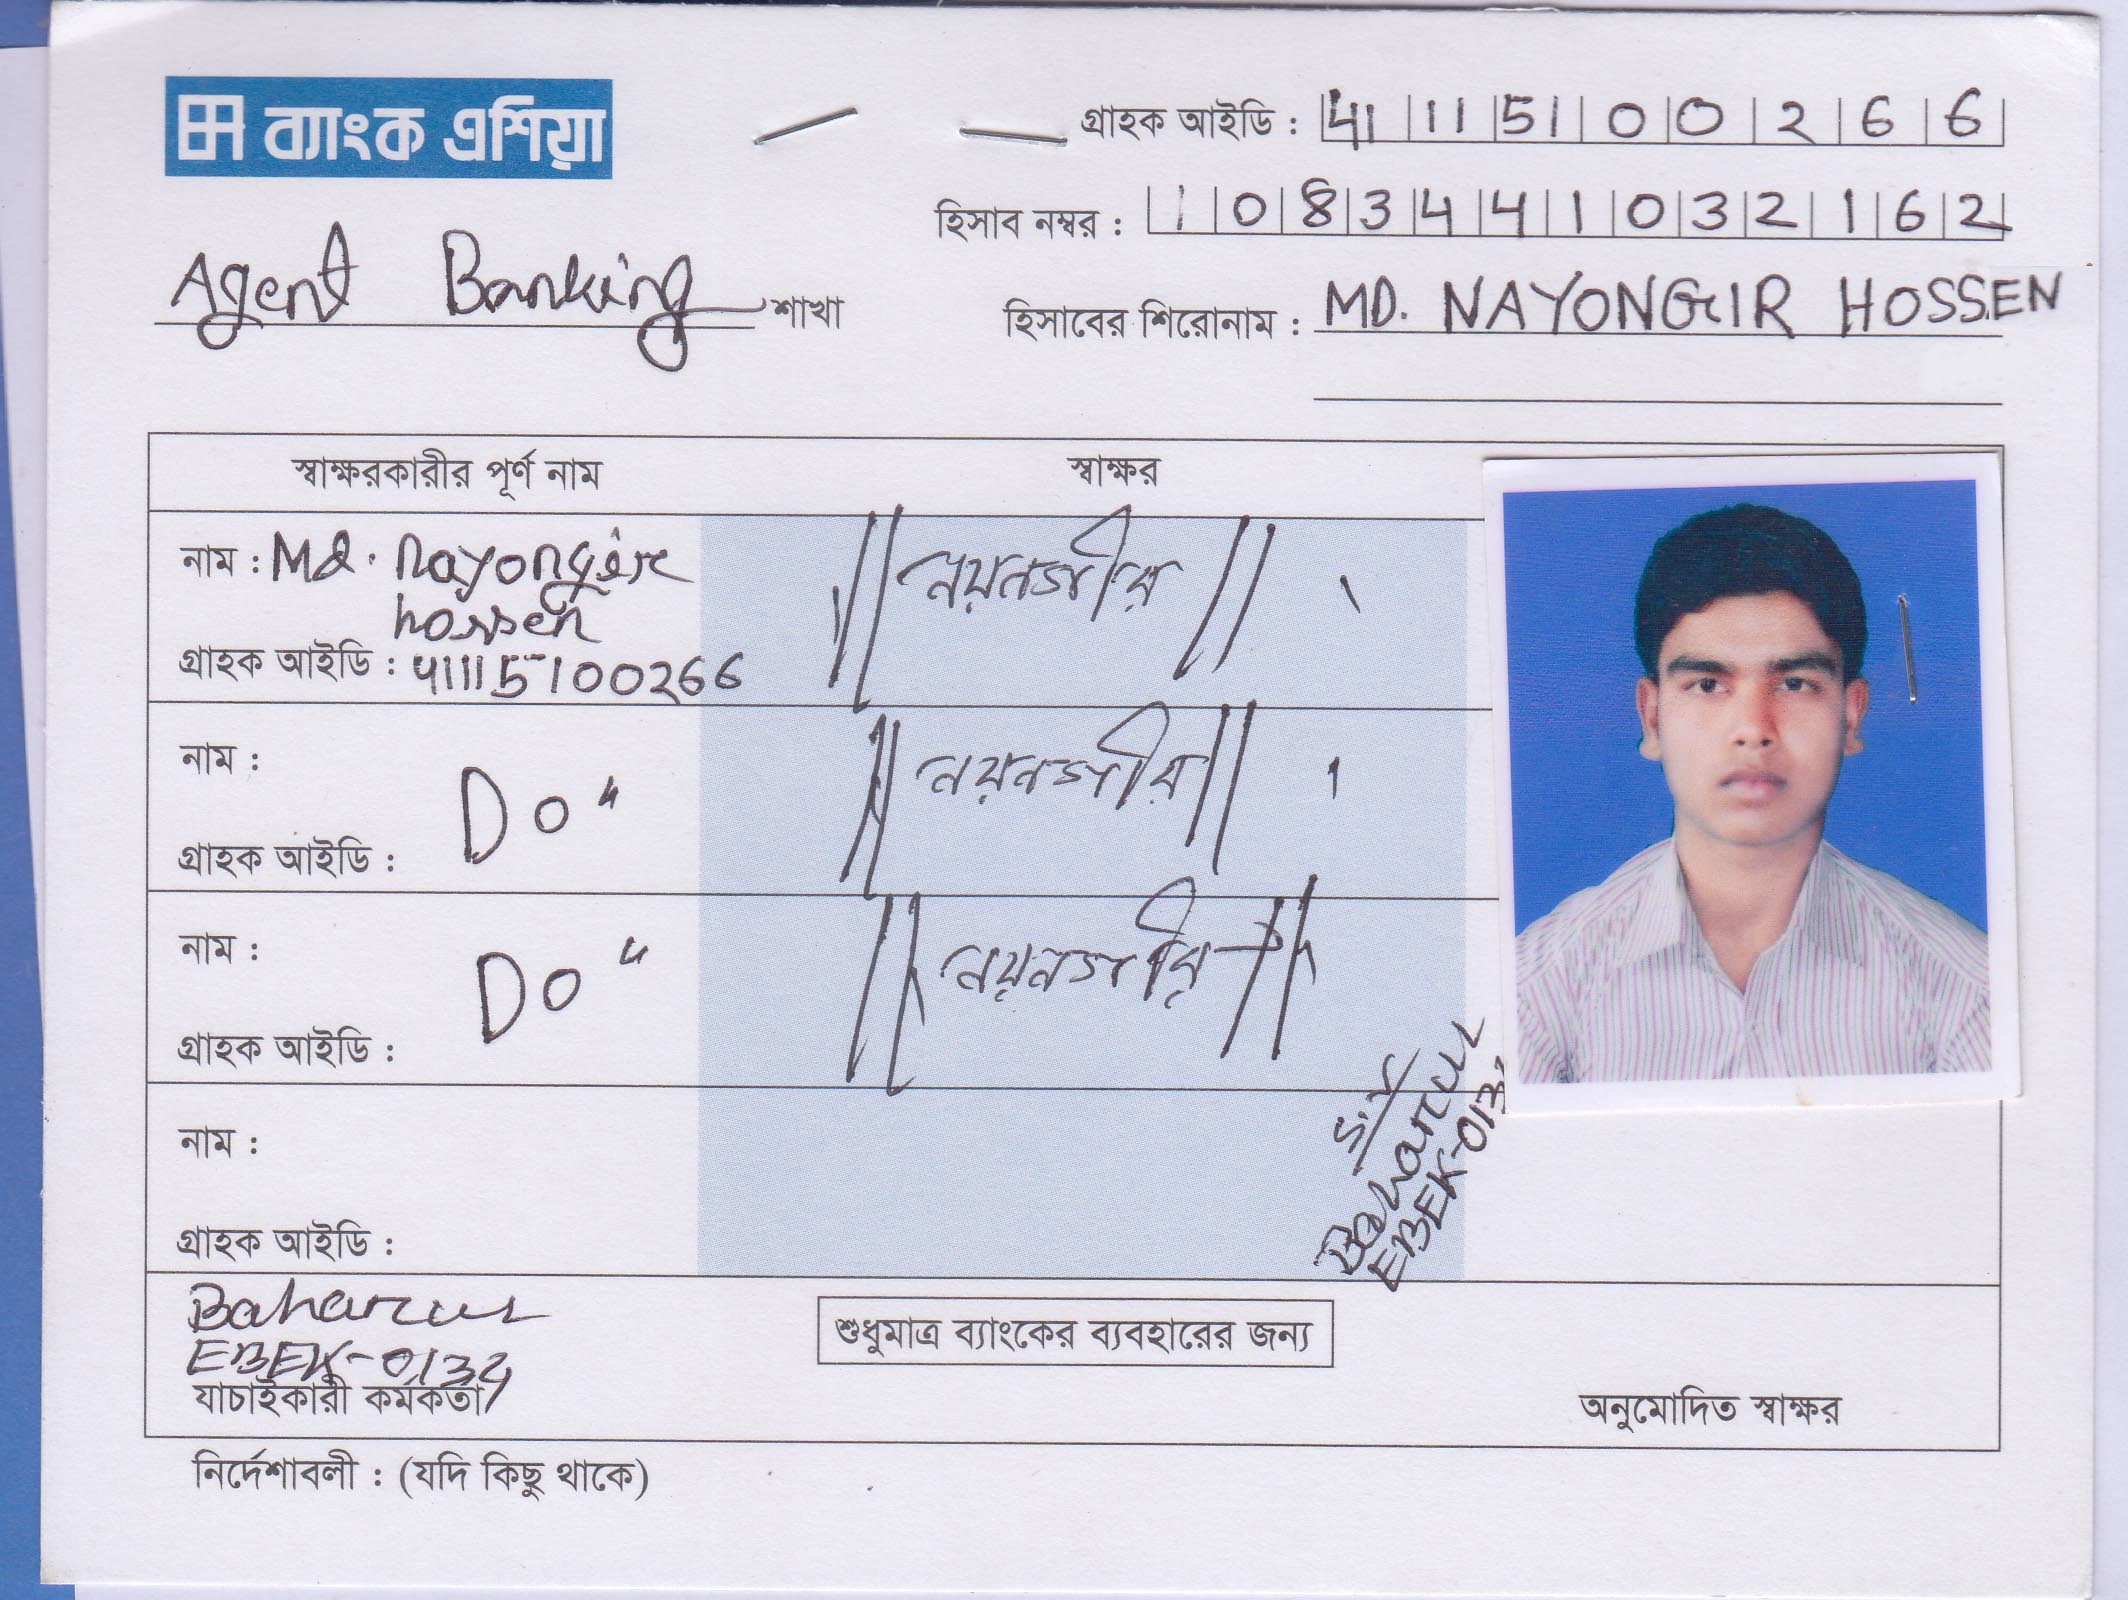 ব্যাংক এশিয়া
গ্রাহক আইডি : 41 11 51 0 0 2 6 6
হিসাব নম্বর : 1 0 8 3 4 4 1 0 3 2 1 6 2
Agent Banking শাখা
হিসাবের শিরোনাম : MD. NAYONGIR HOSSEN
স্বাক্ষরকারীর পূর্ণ নাম
স্বাক্ষর
নাম : Md. Nayongir
hossen
নয়নগীর
গ্রাহক আইডি : 41115100266
নাম :
Do "
নয়নগীর
গ্রাহক আইডি :
নাম :
Do "
নয়নগীর
গ্রাহক আইডি :
নাম :
গ্রাহক আইডি :
S.V
Baharul
EBEK-013
Baharul
EBEK-0134
যাচাইকারী কর্মকর্তা
শুধুমাত্র ব্যাংকের ব্যবহারের জন্য
অনুমোদিত স্বাক্ষর
নির্দেশাবলী : (যদি কিছু থাকে)